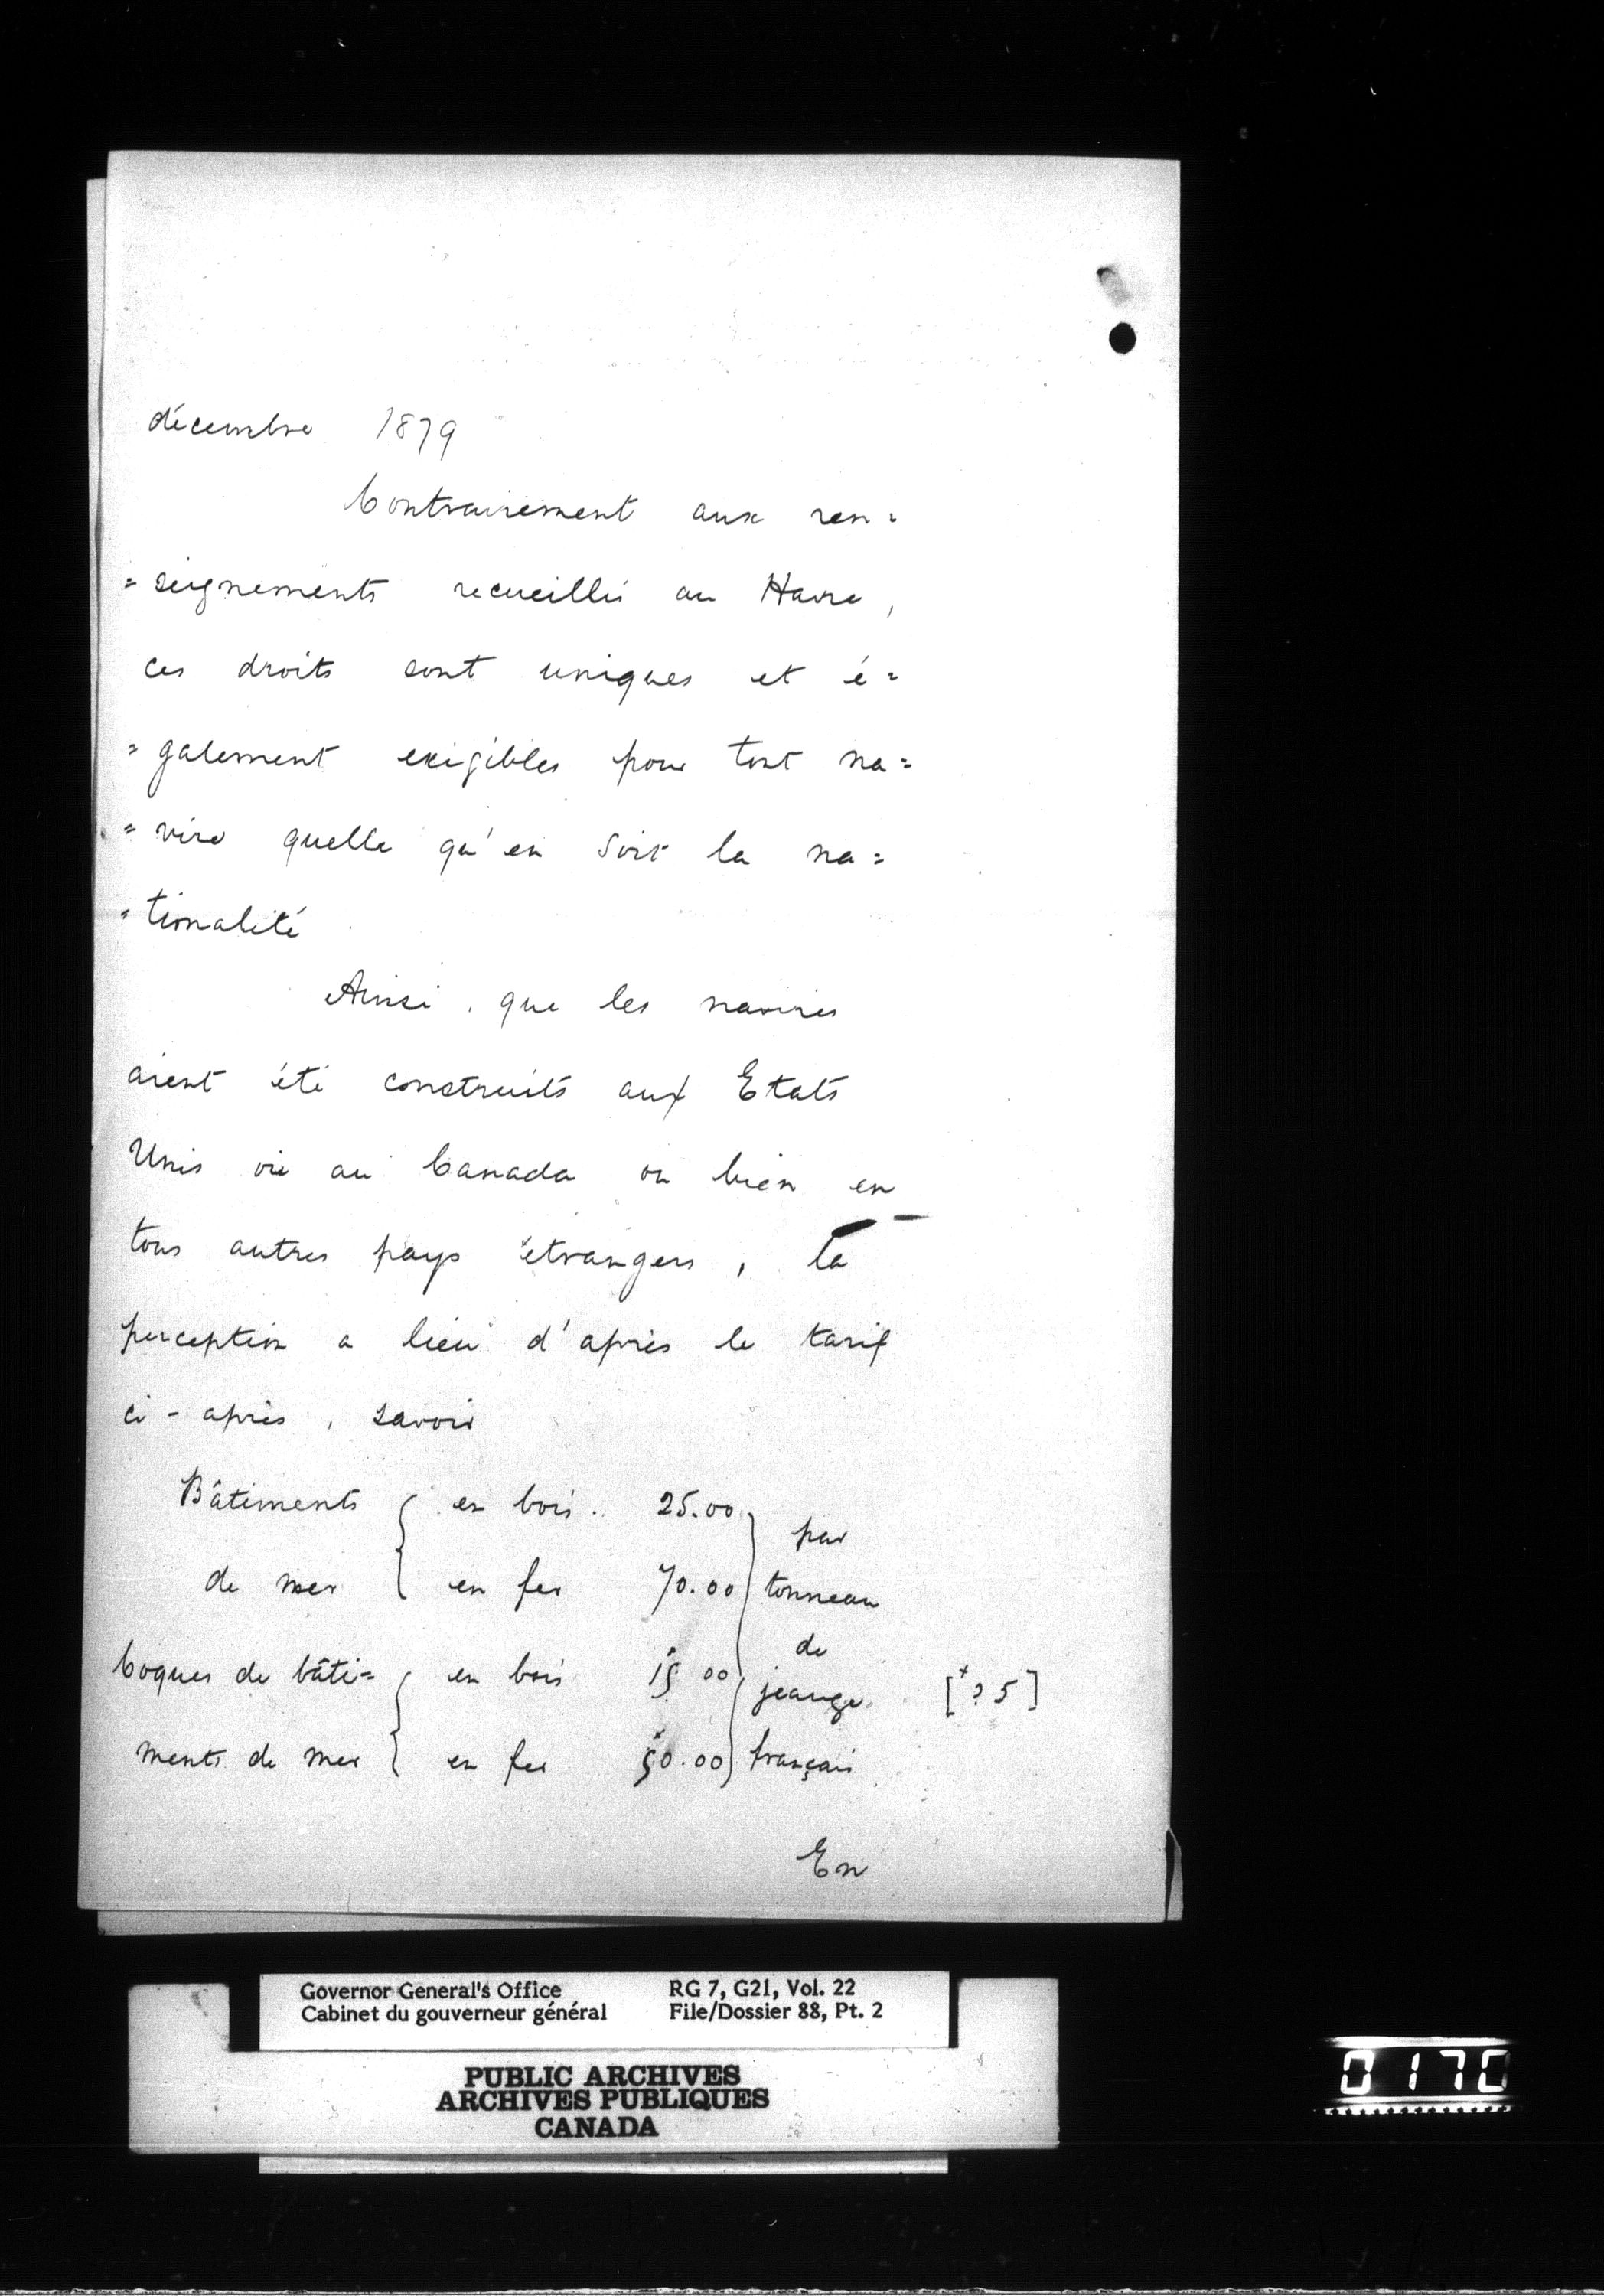 décembre 1879
Contrairement aux ren=
=seignements recueillis au Havre,
ces droits sont uniques et é=
=galement exigibles pour tout na=
=vire quelle qu'en soit la na=
=tionalité
Ainsi, que les navires
aient été construits aux Etats
Unis ou au Canada ou bien en
tous autres pays étrangers, la
perception a lieu d'après le tarif
ci-après, savoir
Bâtiments { en bois.. 25.00 } par
de mer { en fer 70.00 } tonneau
de
Coques de bâti= { en bois 15 00 } jeauge [+ ? 5]
ments de mer { en fer 50.00 } français
En
Governor General's Office RG 7, G21, Vol. 22
Cabinet du gouverneur général File/Dossier 88, Pt. 2
PUBLIC ARCHIVES
ARCHIVES PUBLIQUES
CANADA
0170